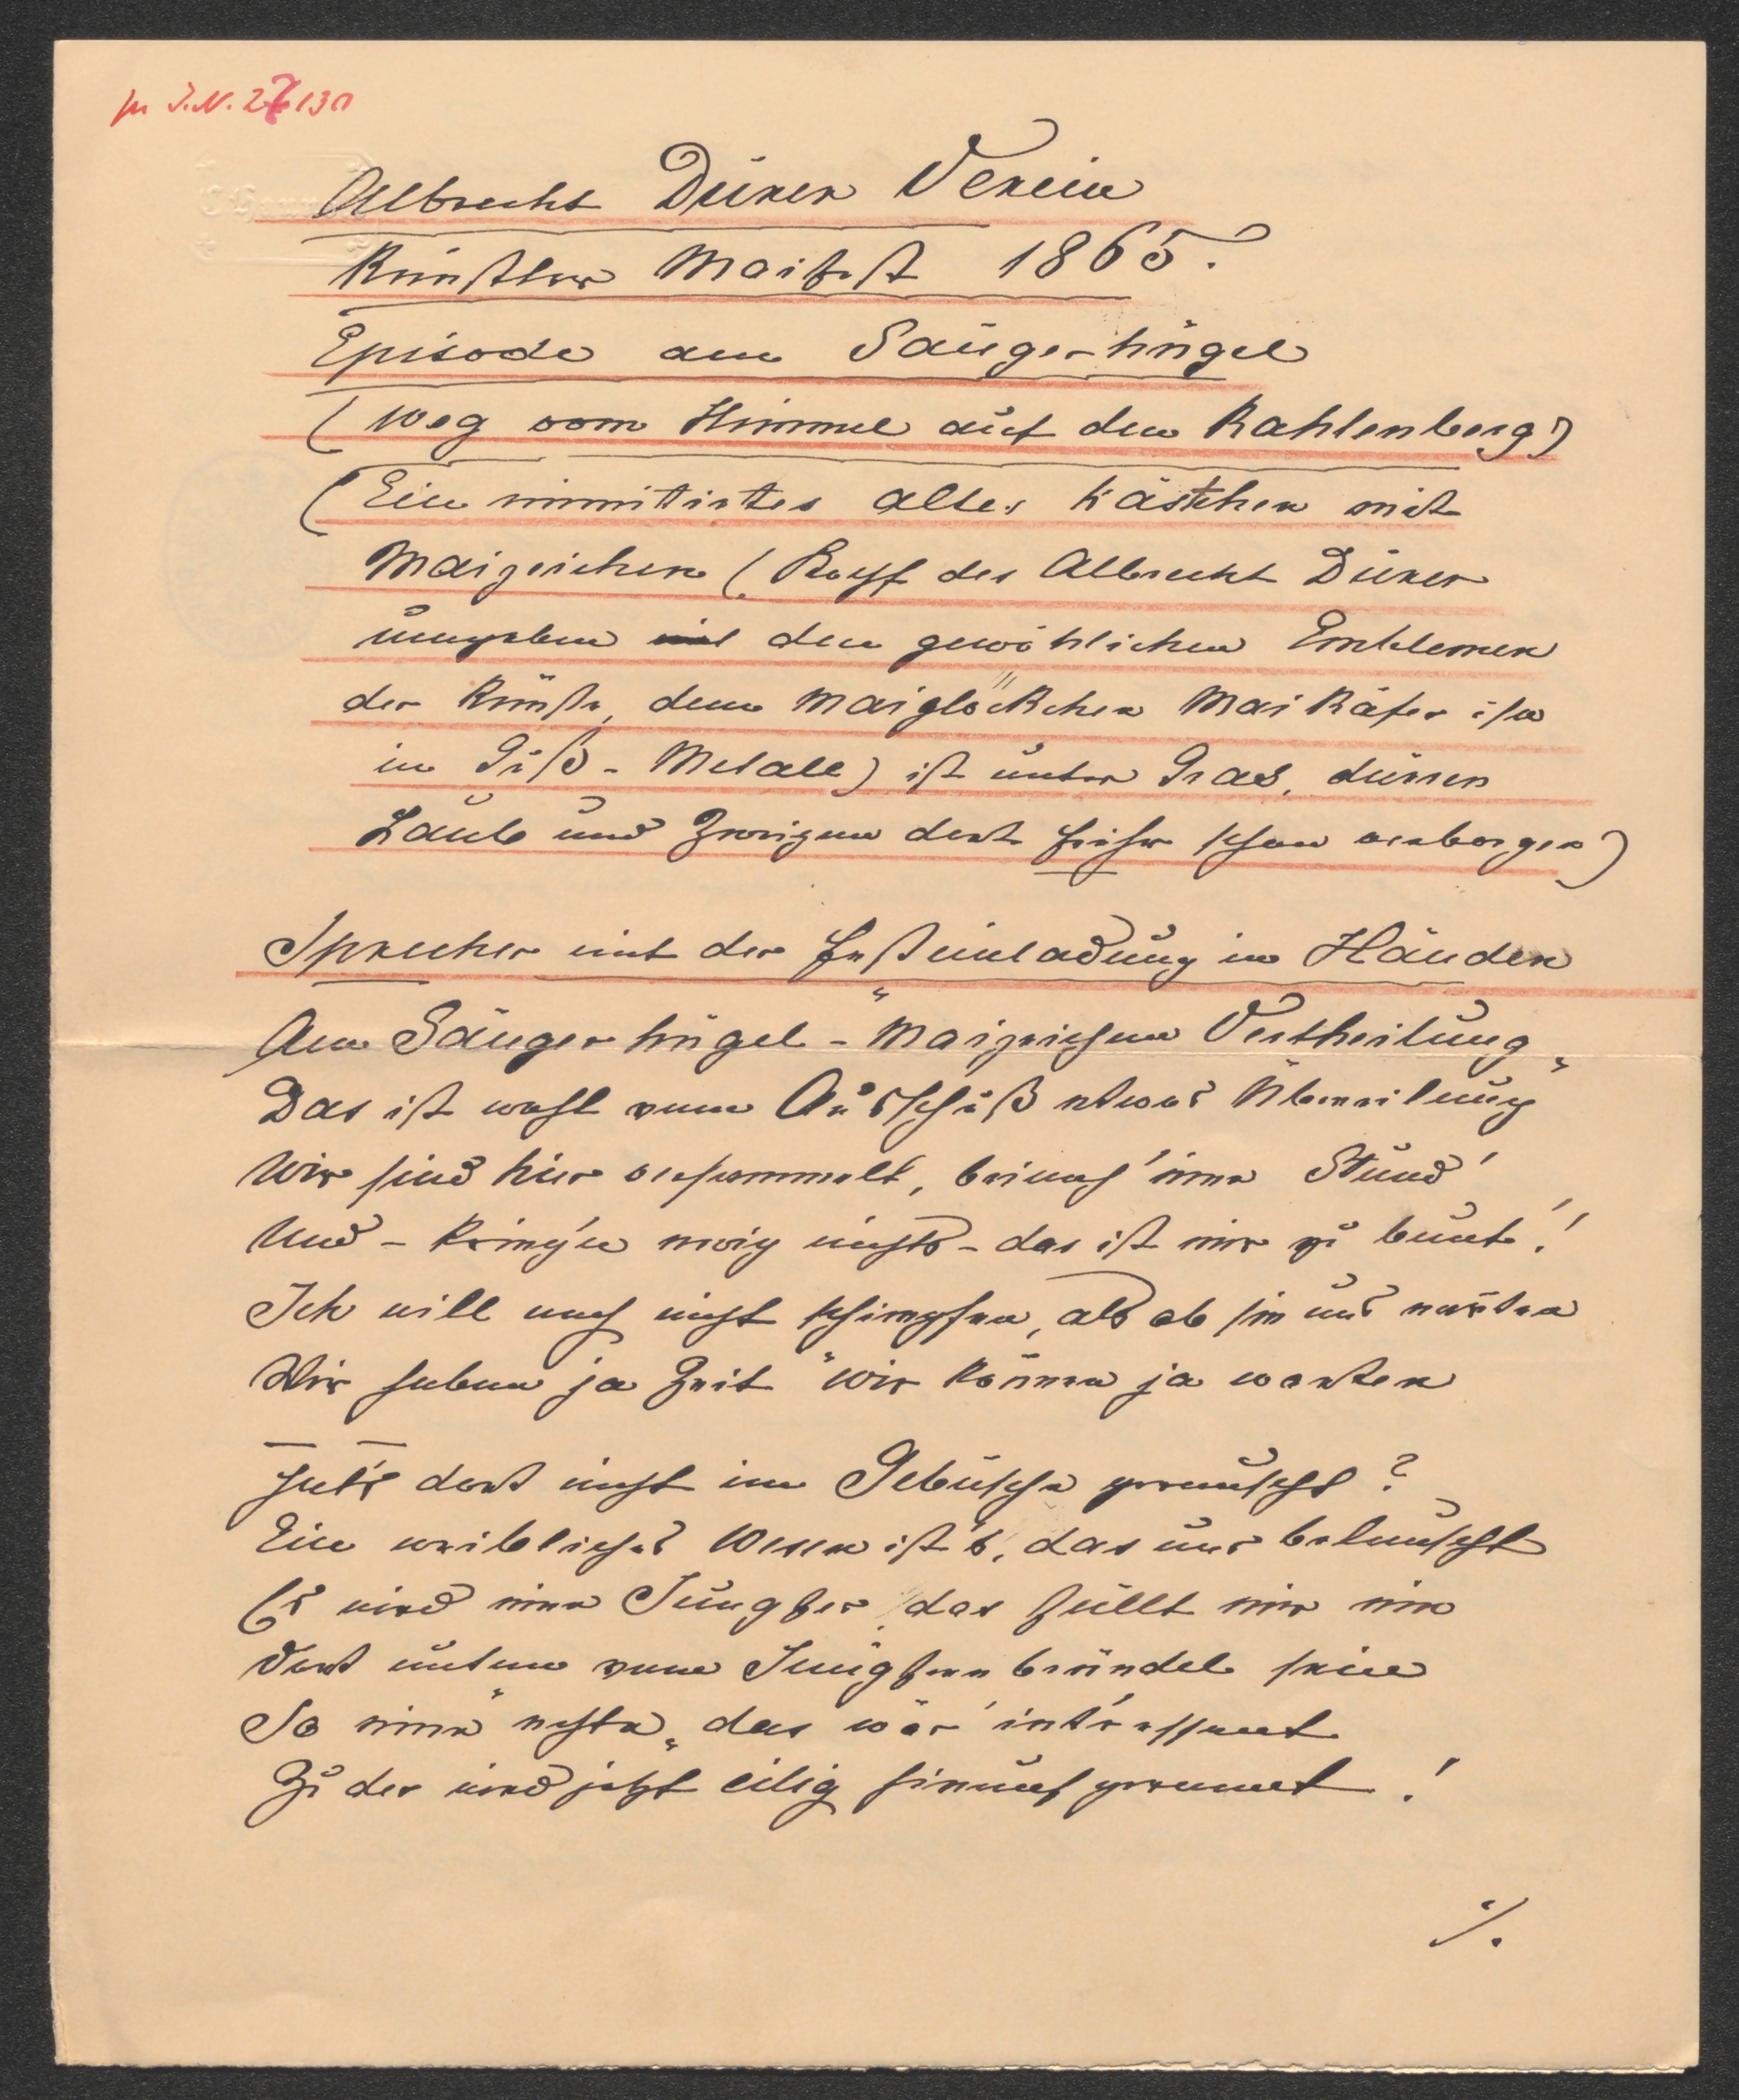 zu I.N. 27130
Albrecht Dürer Verein
Künstler Maifest 1865.
Episode am Sängerhügel
(Weg vom Himmel auf den Kahlenberg)
(Ein immittirtes altes Kästchen mit
Maizeichen (Kopf des Albrecht Dürer
umgeben den gewöhlichen Emblemen
der Künste, dem Maiglöckchen Maikäfer
in Guß-Metall) ist unter Gras, dürren
Laub und Zweigen dort früher schon verborgen)
Sprecher mit der Festeinladung in Händen
Am Sängerhügel - "Maizeichen Vertheilung"
Das ist wohl vom Ausschuß etwas Übereilung
Wir sind hier versammelt, beinah' eine Stund'
Und - kriegen ewig nichts - das ist mir zu bunt!'
Ich will noch nicht schimpfen, als ob sie uns narrten
Wir haben ja Zeit "wir können ja warten
Hat's dort nicht im Gebüsche gerauscht?
Ein weibliches Wesen ist's, das uns belauscht
Es wird eine Jungfer, das fällt mir ein
Dort unten vom Jungfernbründel sein
So eine "echte" das wär' int'ressant
Zu der wird jetzt eilig hinauf gerannt!
./.